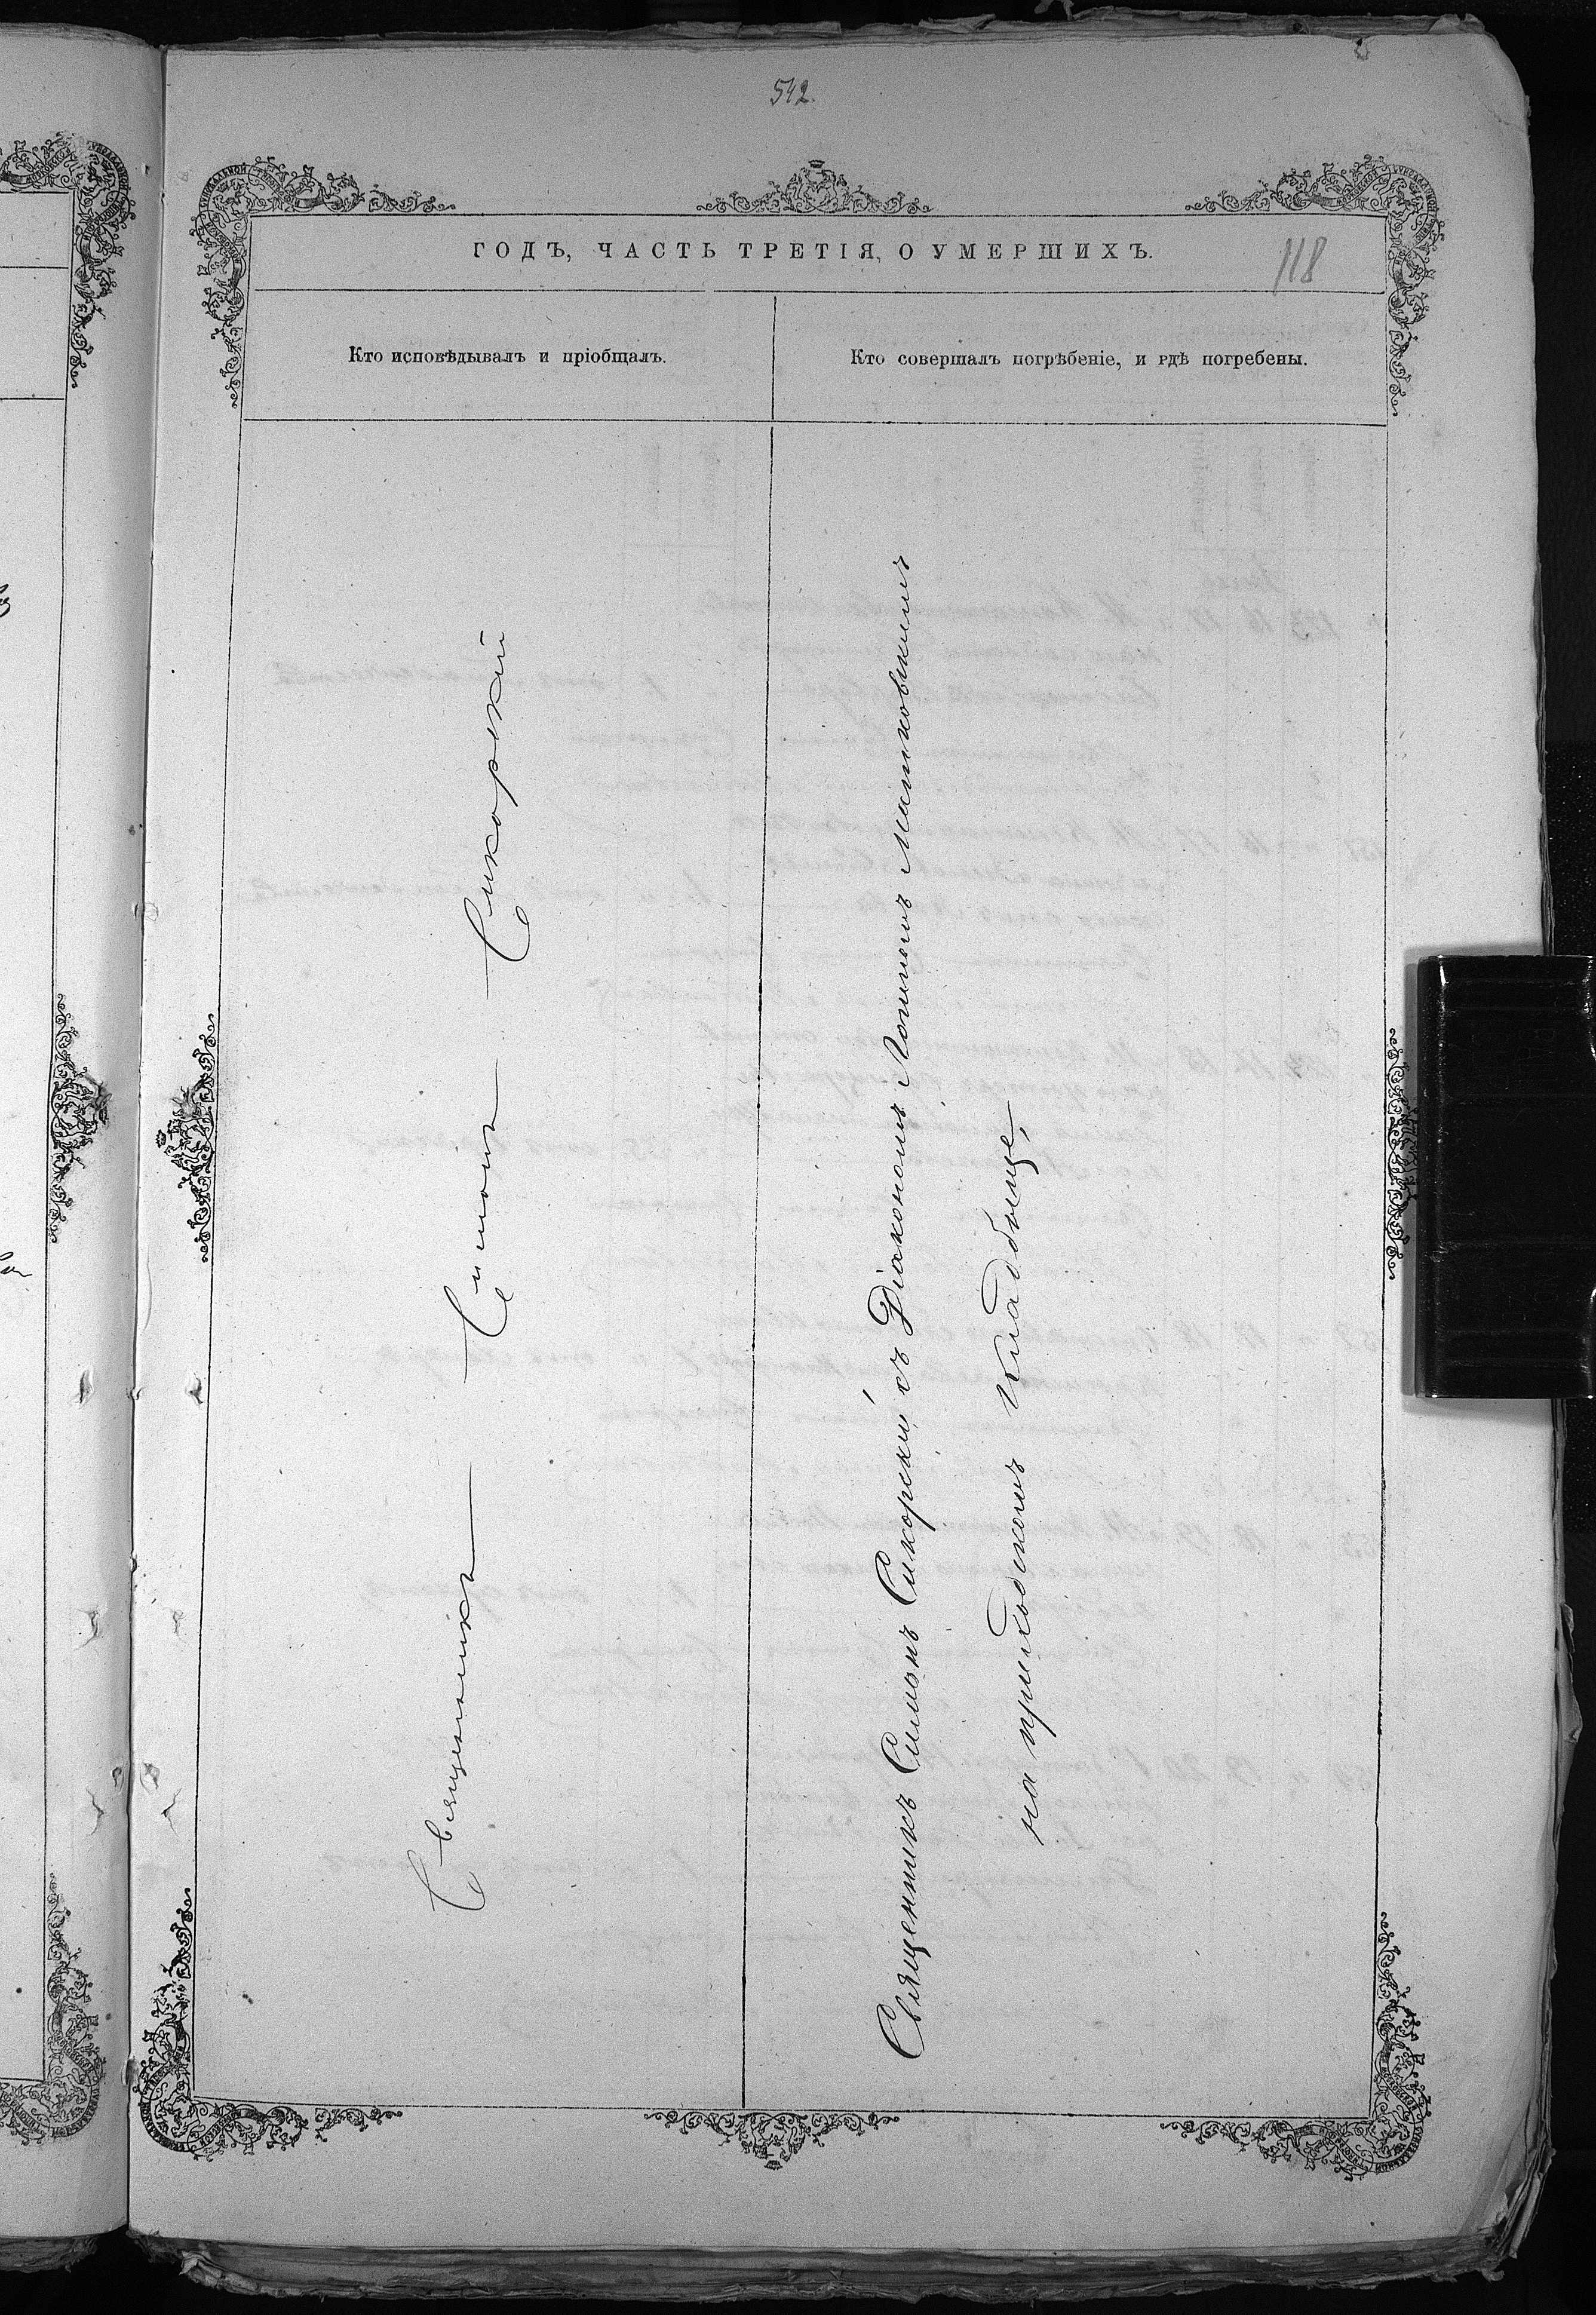 542.
ГОДЪ, ЧАСТЬ ТРЕТІЯ, О УМЕРШИХЪ.
118
Кто исповѣдывалъ и пріобщалъ.
Кто совершалъ погрѣбеніе, и гдѣ погребены.
Священникъ Симонъ Сикорскій
Священникъ Симонъ Сикорскій съ Діакономъ
на приходскомъ кладбище,